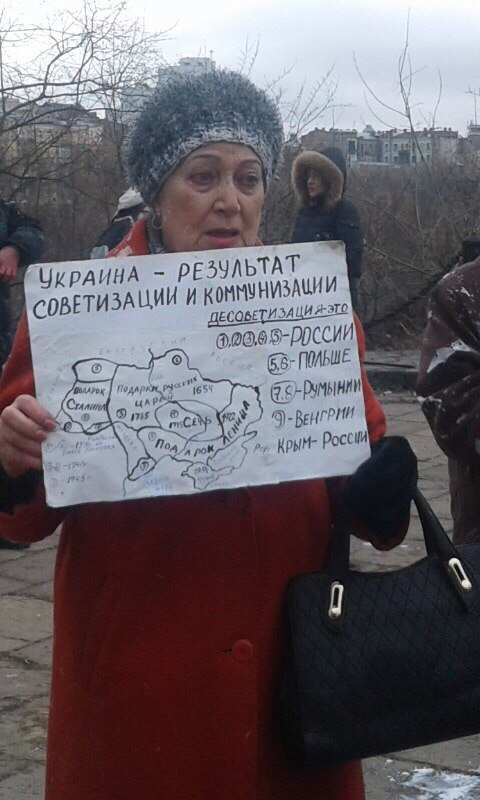 УКРАИНА - РЕЗУЛЬТАТ
СОВЕТИЗАЦИИ И КОММУНИЗАЦИИ
ДЕСОВЕТИЗАЦИЯ-ЭТО
1,2,3,4,5-РОССИИ
5,6-ПОЛЬШЕ
7,8-РУМЫНИИ
9-ВЕНГРИИ
КРЫМ-РОССИИ
ПОДАРОК
СТАЛИНА
ПОДАРКИ РУССКИХ
ЦАРЕЙ
1654
ПОДАРОК
1922
ЛЕНИНА